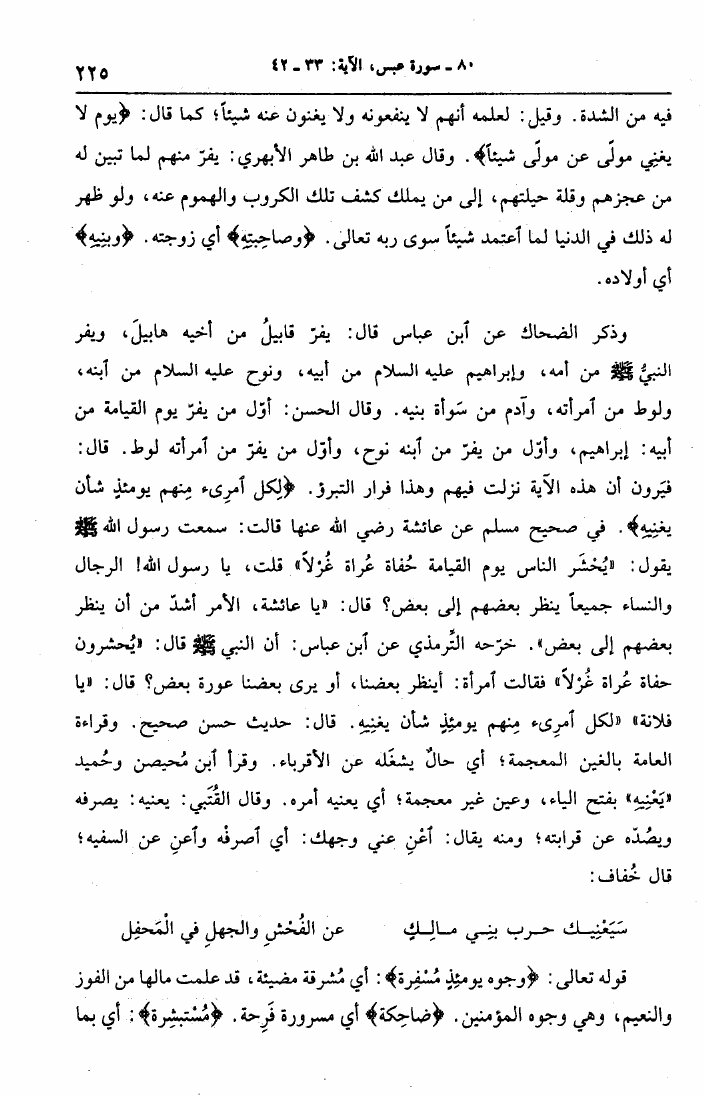 ٨٠ ـ سورة عبس، الآية: ٣٣ ـ ٤٢
٢٢٥
فيه من الشدة. وقيل: لعلمه أنهم لا ينفعونه ولا يغنون عنه شيئاً؛ كما قال: ﴿يوم لا
يغني مولًى عن مولًى شيئاً﴾. وقال عبد الله بن طاهر الأبهري: يفرّ منهم لما تبين له
من عجزهم وقلة حيلتهم، إلى من يملك كشف تلك الكروب والهموم عنه، ولو ظهر
له ذلك في الدنيا لما ٱعتمد شيئاً سوى ربه تعالى. ﴿وصاحِبتِهِ﴾ أي زوجته. ﴿وبنِيهِ﴾
أي أولاده.
وذكر الضحاك عن ٱبن عباس قال: يفرّ قابيلُ من أخيه هابيلَ، ويفر
النبيُّ ﷺ من أمه، وإبراهيم عليه السلام من أبيه، ونوح عليه السلام من ٱبنه،
ولوط من ٱمرأته، وآدم من سَوأة بنيه. وقال الحسن: أوّل من يفرّ يوم القيامة من
أبيه: إبراهيم، وأوّل من يفرّ من ٱبنه نوح، وأوّل من يفرّ من ٱمرأته لوط. قال:
فيَرون أن هذه الآية نزلت فيهم وهذا فرار التبرؤ. ﴿لِكل ٱمرِىء مِنهم يومئذٍ شأن
يغنِيهِ﴾. في صحيح مسلم عن عائشة رضي الله عنها قالت: سمعت رسول الله ﷺ
يقول: «يُحْشَر الناس يوم القيامة حُفاة عُراة غُرْلاً» قلت، يا رسول الله! الرجال
والنساء جميعاً ينظر بعضهم إلى بعض؟ قال: «يا عائشة، الأمر أشدّ من أن ينظر
بعضهم إلى بعض». خرّجه التِّرمذي عن ٱبن عباس: أن النبي ﷺ قال: «يُحشرون
حفاة عُراة غُرْلاً» فقالت ٱمرأة: أينظر بعضنا، أو يرى بعضنا عورة بعض؟ قال: «يا
فلانة» «لكل ٱمرِىء مِنهم يومئِذٍ شأن يغنِيهِ. قال: حديث حسن صحيح. وقراءة
العامة بالغين المعجمة؛ أي حالٌ يشغَله عن الأقرباء. وقرأ ٱبن مُحيصن وحُميد
«يَعْنِيهِ» بفتح الياء، وعين غير معجمة؛ أي يعنيه أمره. وقال القُتَبي: يعنيه: يصرفه
ويصُدّه عن قرابته؛ ومنه يقال: ٱعْنِ عني وجهك: أي ٱصرفْه وٱعنِ عن السفيه؛
قال خُفاف:
سَيَعْنِيـك حـرب بنِـي مـالِـكٍ عن الفُحْشِ والجهلِ في الْمَحفِل
قوله تعالى: ﴿وجوه يومئِذٍ مُسْفِرة﴾: أي مُشرقة مضيئة، قد علمت مالها من الفوز
والنعيم، وهي وجوه المؤمنين. ﴿ضاحِكة﴾ أي مسرورة فَرِحة. ﴿مُسْتبشِرة﴾: أي بما